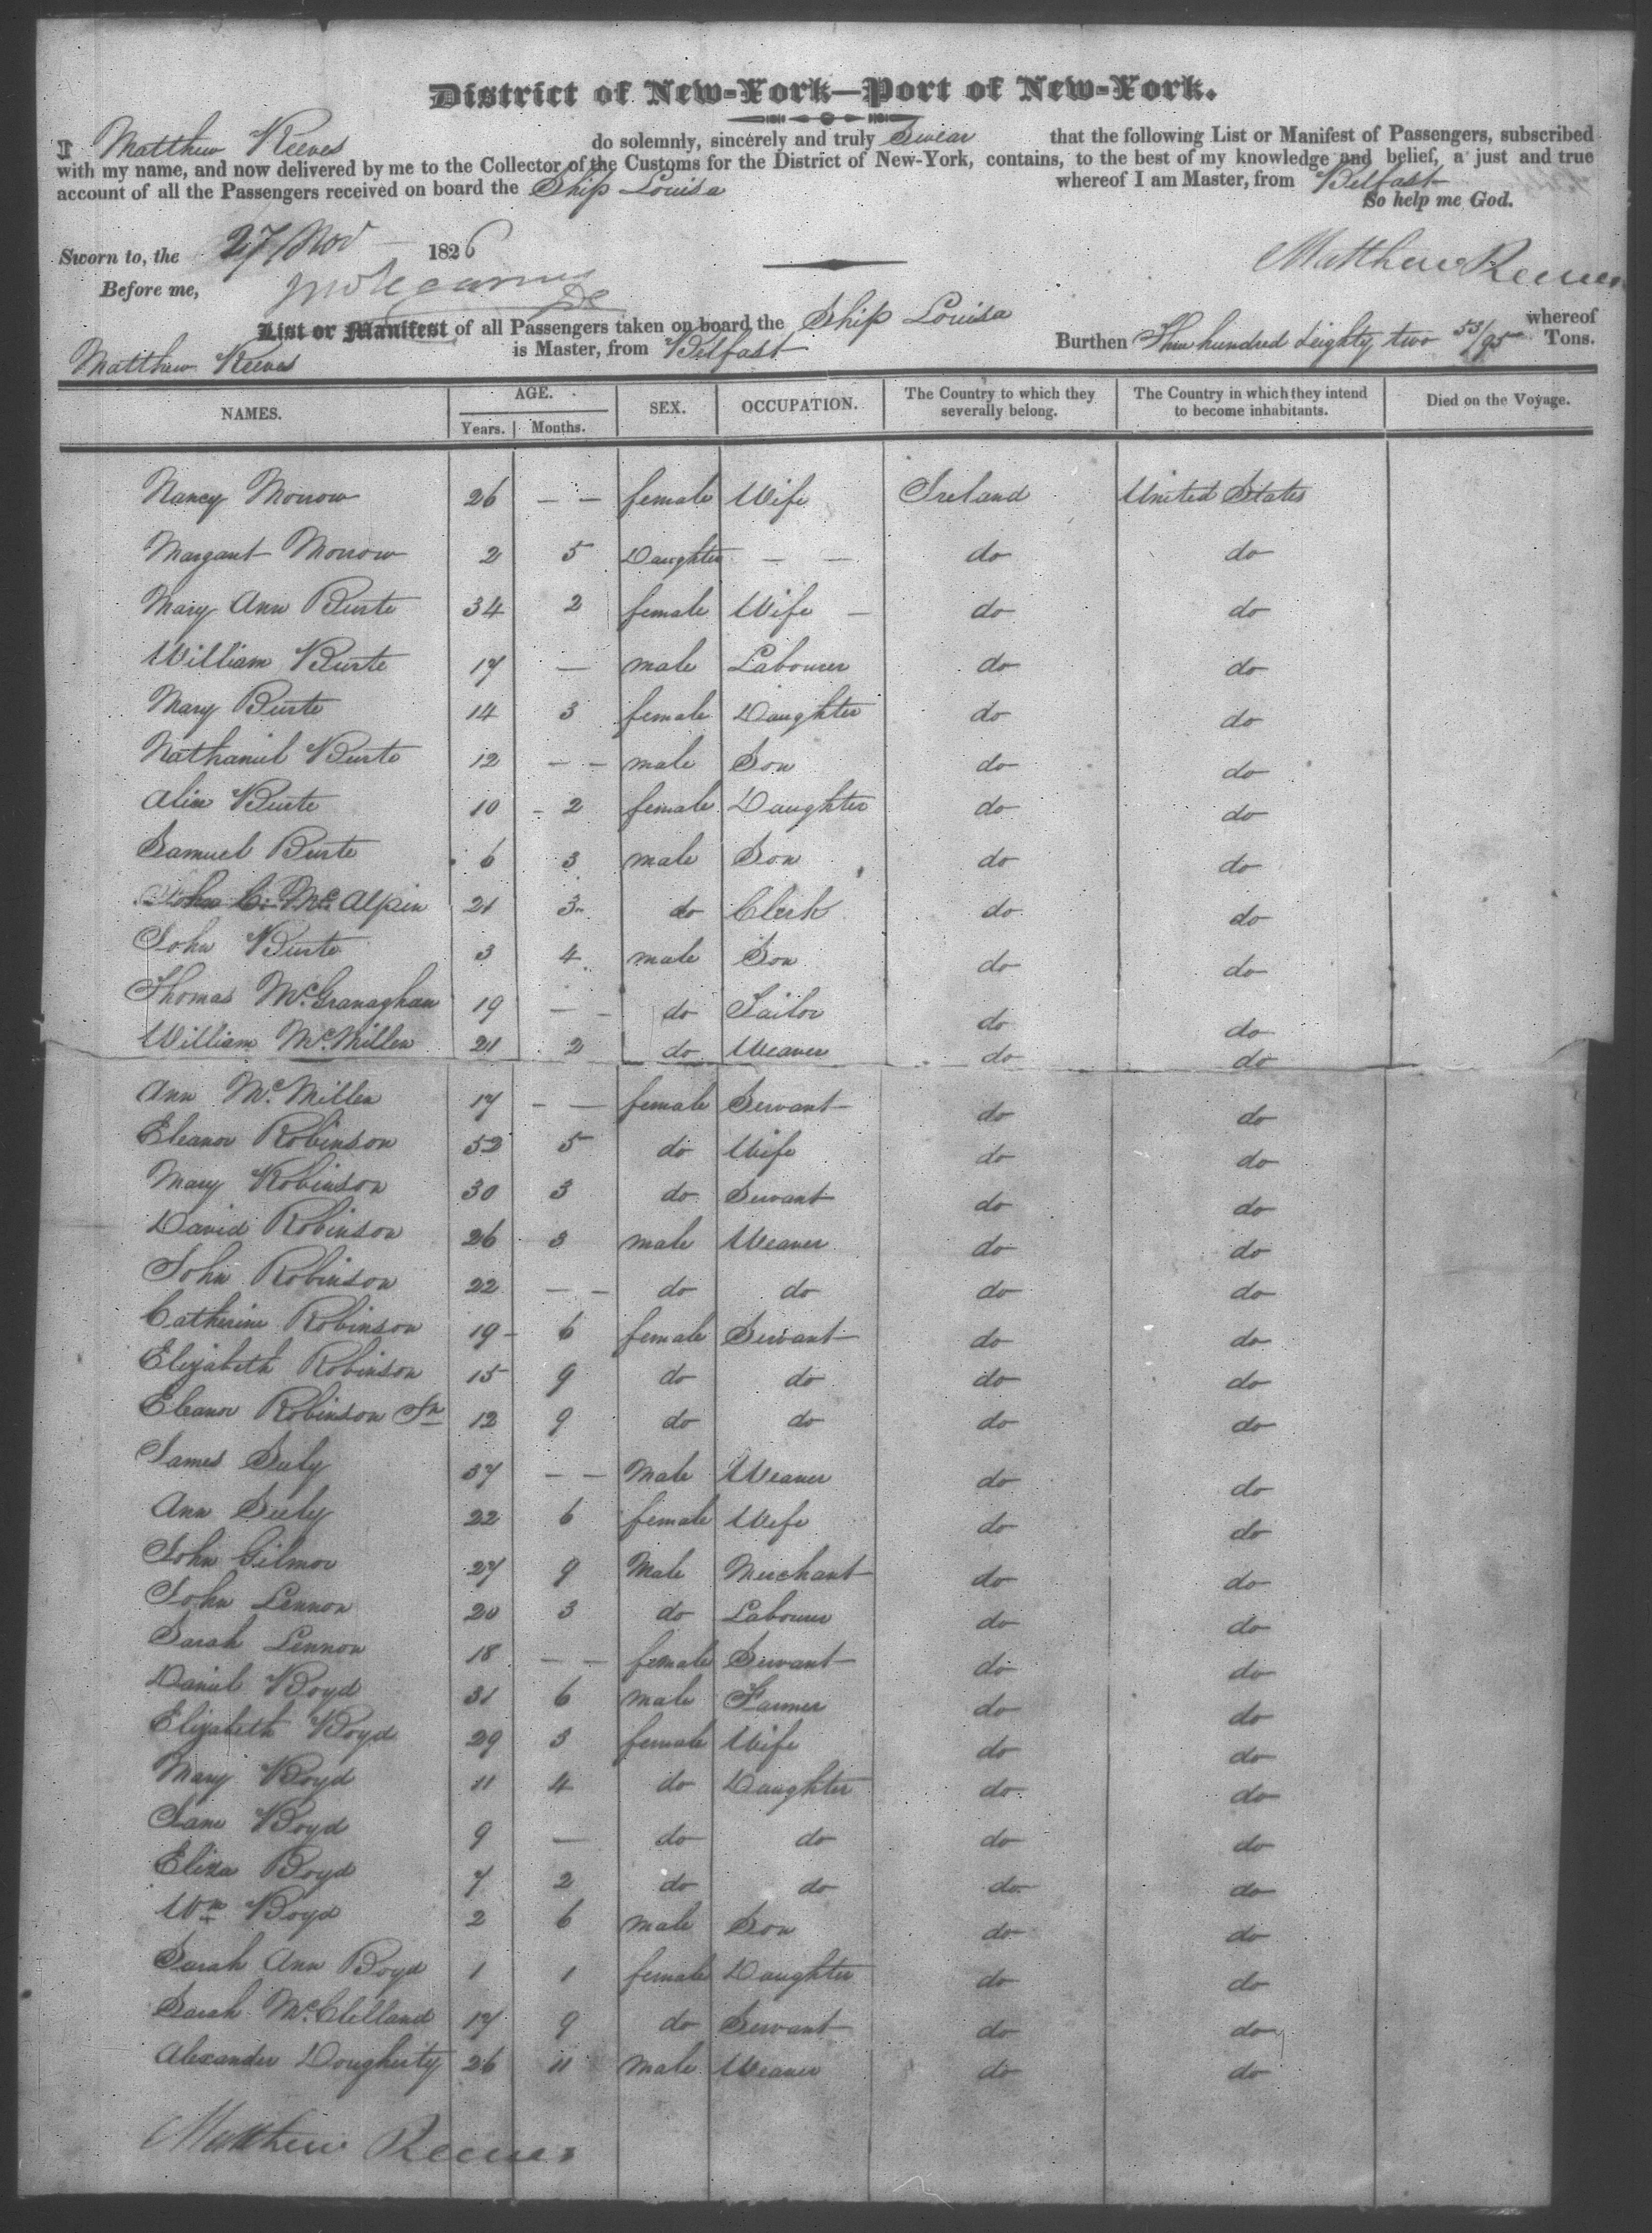 District of New-York—Port of New-York.
I Matthew Reeves do solemnly, sincerely and truly Swear that the following List or Manifest of Passengers, subscribed
with my name, and now delivered by me to the Collector of the Customs for the District of New-York, contains, to the best of my knowledge and belief, a just and true
account of all the Passengers received on board the Ship Louisa whereof I am Master, from Belfast
So help me God.
Sworn to, the 27 Nov 1826
Matthew Reeves
Before me,
List or Manifest of all Passengers taken on board the Ship Louisa whereof
Matthew Reeves is Master, from Belfast Burthen Three hundred & eighty two 53/95 Tons.
NAMES. AGE. Years. Months. SEX. OCCUPATION. The Country to which they severally belong. The Country in which they intend to become inhabitants. Died on the Voyage.
Nancy Morrow 26 — — female Wife Ireland United States
Margaret Morrow 2 5 Daughter — — do do
Mary Ann Burte 34 2 female Wife — do do
William Burte 17 — male Labourer do do
Mary Burte 14 3 female Daughter do do
Nathaniel Burte 12 — — male Son do do
Burte 10 - 2 female Daughter do do
Samuel Burte 6 3 male Son do do
John C. McAlpin 21 3 do Clerk do do
John Burte 3 4 male Son do do
Thomas McGranaghan 19 — — do Tailor do do
William McMillen 21 2 do Weaver do do
Ann McMillen 17 - — female Servant do do
Eleanor Robinson 52 5 do Wife do do
Mary Robinson 30 3 do Servant do do
David Robinson 26 3 male Weaver do do
John Robinson 22 — — do do do do
Catherine Robinson 19 - 6 female Servant do do
Elizabeth Robinson 15 9 do do do do
Eleanor Robinson Jr 12 9 do do do do
James Suly 37 — — Male Weaver do do
Ann Suly 22 6 female Wife do do
John Gilmor 27 9 Male Merchant do do
John Lennon 20 3 do Labourer do do
Sarah Lennon 18 — — female Servant do do
Daniel Boyd 31 6 male Farmer do do
Elizabeth Boyd 29 3 female Wife do do
Mary Boyd 11 4 do Daughter do do
Jane Boyd 9 — do do do do
Eliza Boyd 7 2 do do do do
Wm Boyd 2 6 male Son do do
Sarah Ann Boyd 1 1 female Daughter do do
Sarah McClelland 17 9 do Servant do do
Alexander Dougherty 26 11 male Weaver do do
Matthew Reeves